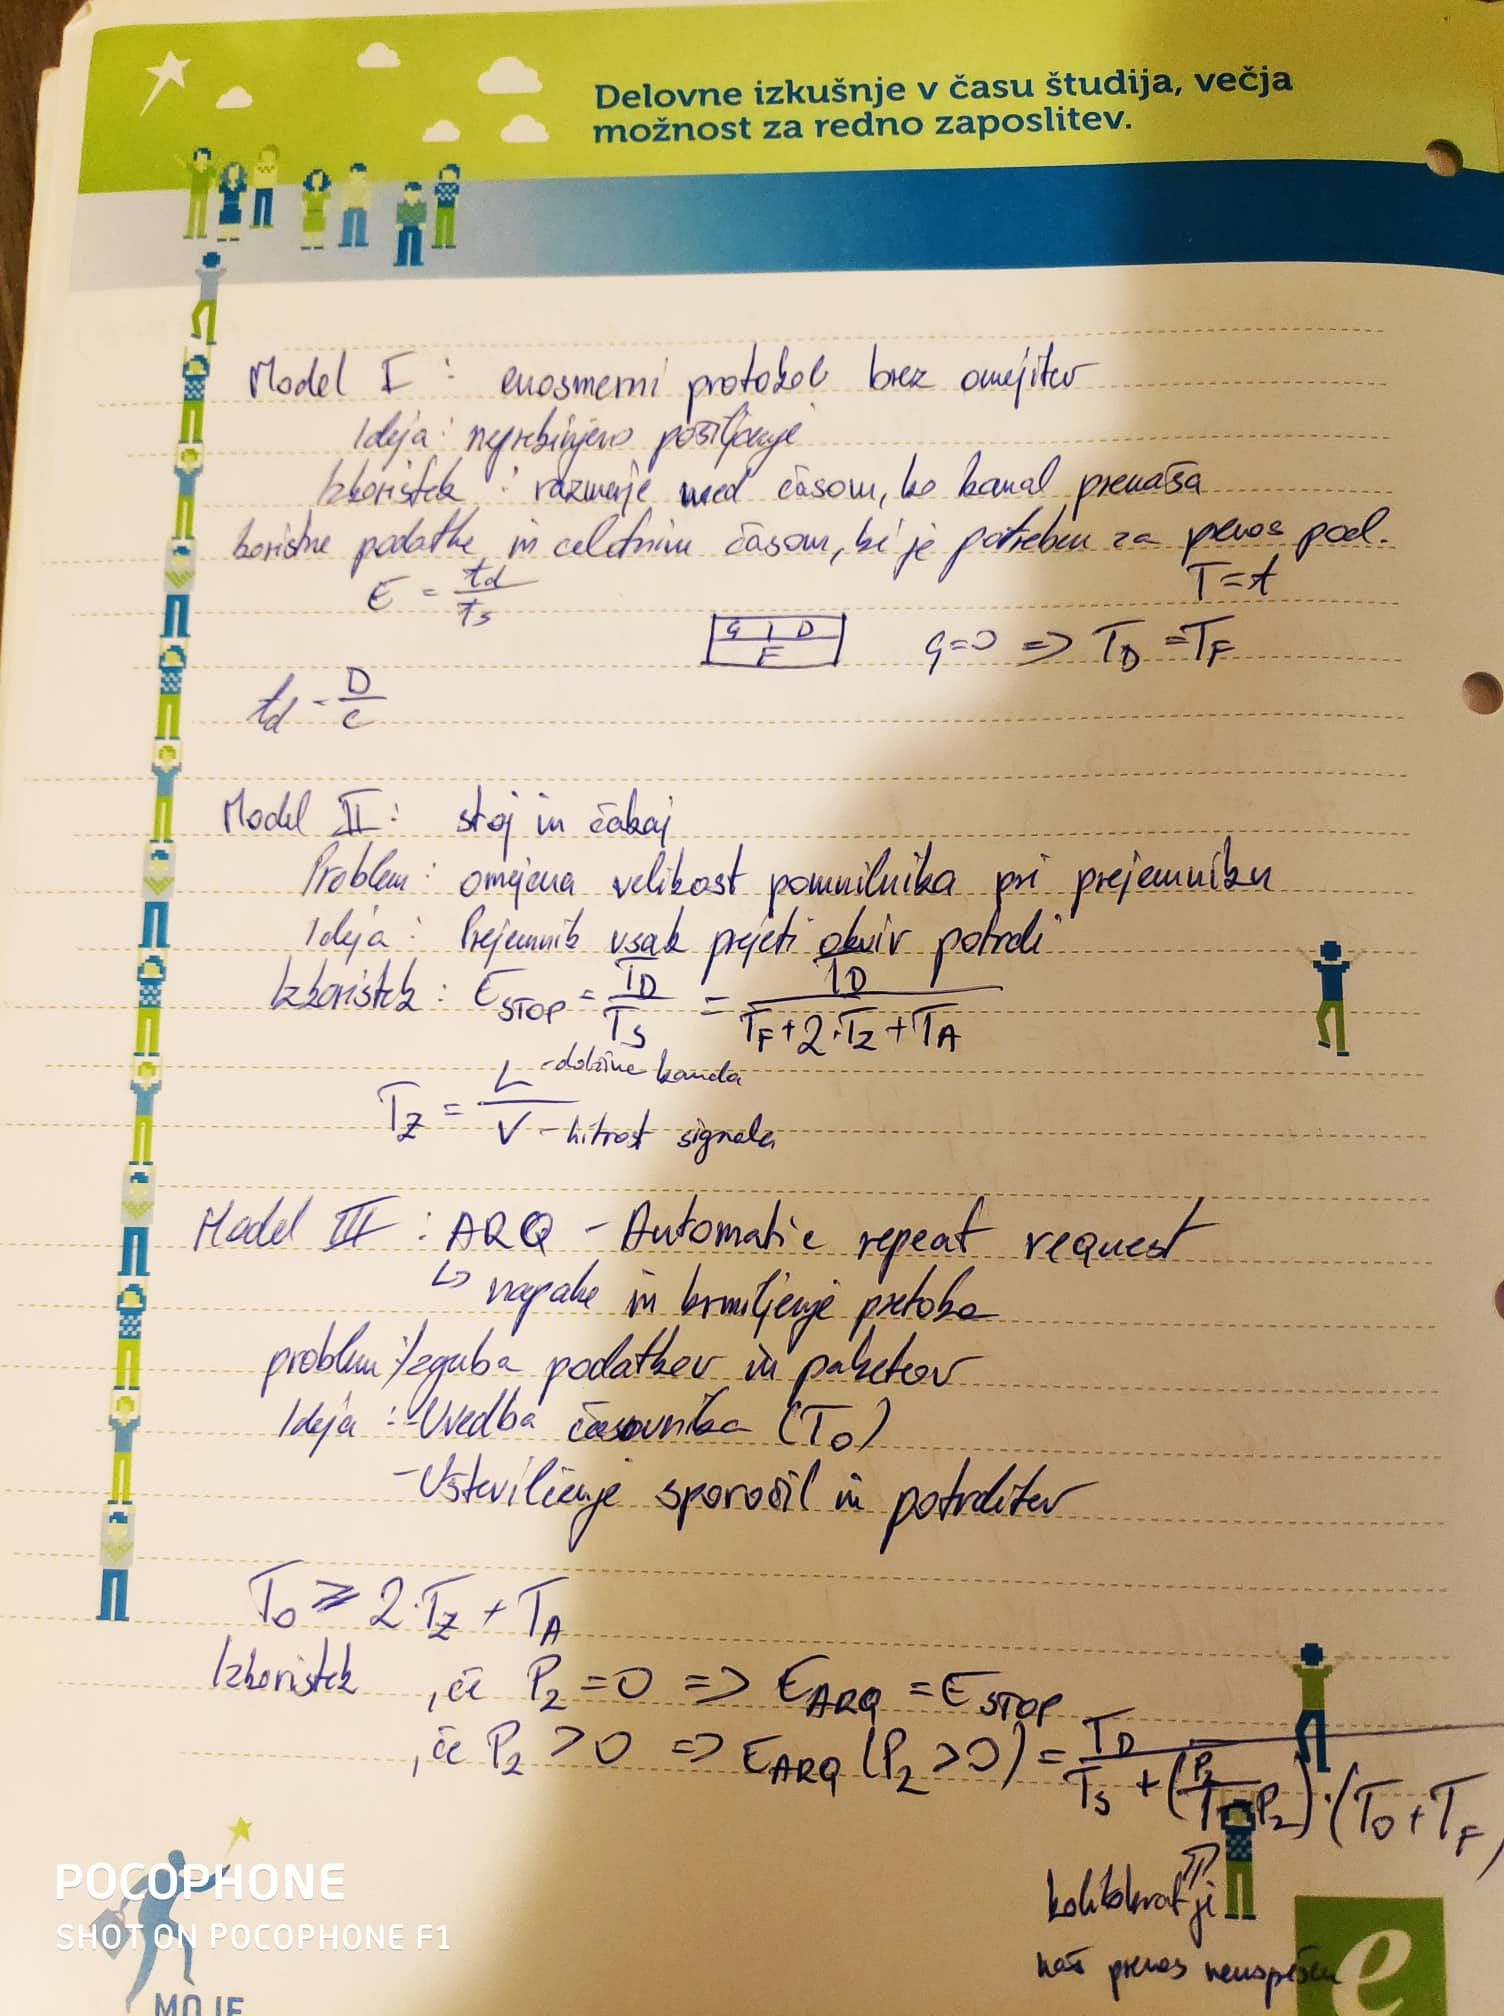 Delovne izkušnje v času študija, večja
možnost za redno zaposlitev.
Model I : enosmerni protokol brez omejitev
Ideja : neprekinjeno pošiljanje
Izkoristek : razmerje med časom, ko kanal prenaša
koristne podatke in celotnim časom, ki je potreben za prenos pod.
E = td/ts
T=t
G | D
F
G=0 => TD = TF
td = D/C
Model II : stoj in čakaj
Problem : omejena velikost pomnilnika pri prejemniku
Ideja : Prejemnik vsak prejeti okvir potrdi
Izkoristek : ESTOP = TD/TS = TD/(TF+2·TZ+TA)
TZ = L/V
-dolžina kanala
-hitrost signala
Model III : ARQ - Automatic repeat request
↳ napake in krmiljenje pretoka
problem : Izguba podatkov in paketov
Ideja : -Uvedba časovnika (TO)
-Uštevilčenje sporočil in potrditev
TO ≥ 2·TZ + TA
Izkoristek , če P2=0 => EARQ = ESTOP
, če P2 > 0 => EARQ (P2>0) = TD/(TS + (P2/(1-P2))·(TO+TF))
kolikokrat je
naš prenos neuspešen
POCOPHONE
SHOT ON POCOPHONE F1
MOJE
e